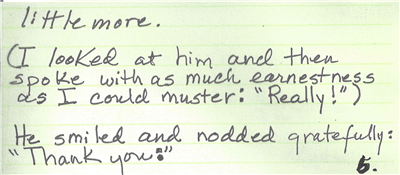 little more.
(I looked at him and then
spoke with as much earnestness
as I could muster: "Really!")
He smiled and nodded gratefully:
"Thank you:"
5.